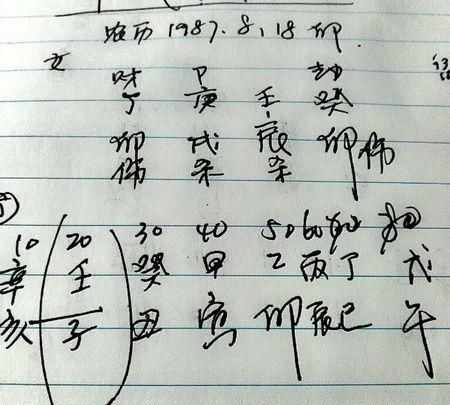 农历 1987.8.18 卯
女
财 P 劫
丁 庚 壬 癸
卯 戌 辰 卯 伤
伤 杀 杀
10 20 30 40 50 60
辛 壬 癸 甲 乙 丙 丁 戊
亥 子 丑 寅 卯 辰 巳 午